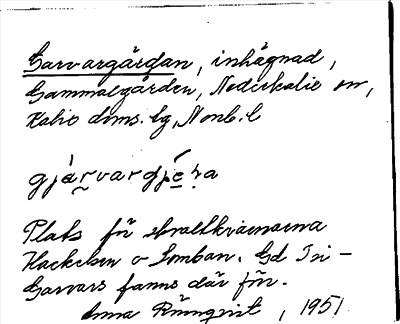 Garvargårdan, inhägnad,
Gammalgården, Nederkalix sn,
Kalix doms. lg, Nonb. l
gjárvargjɛ́ṛa
Plats för
Hackelsen o Lomban. Gd
Garvars fanns där förr.
Anna Rönnqvist, 1951